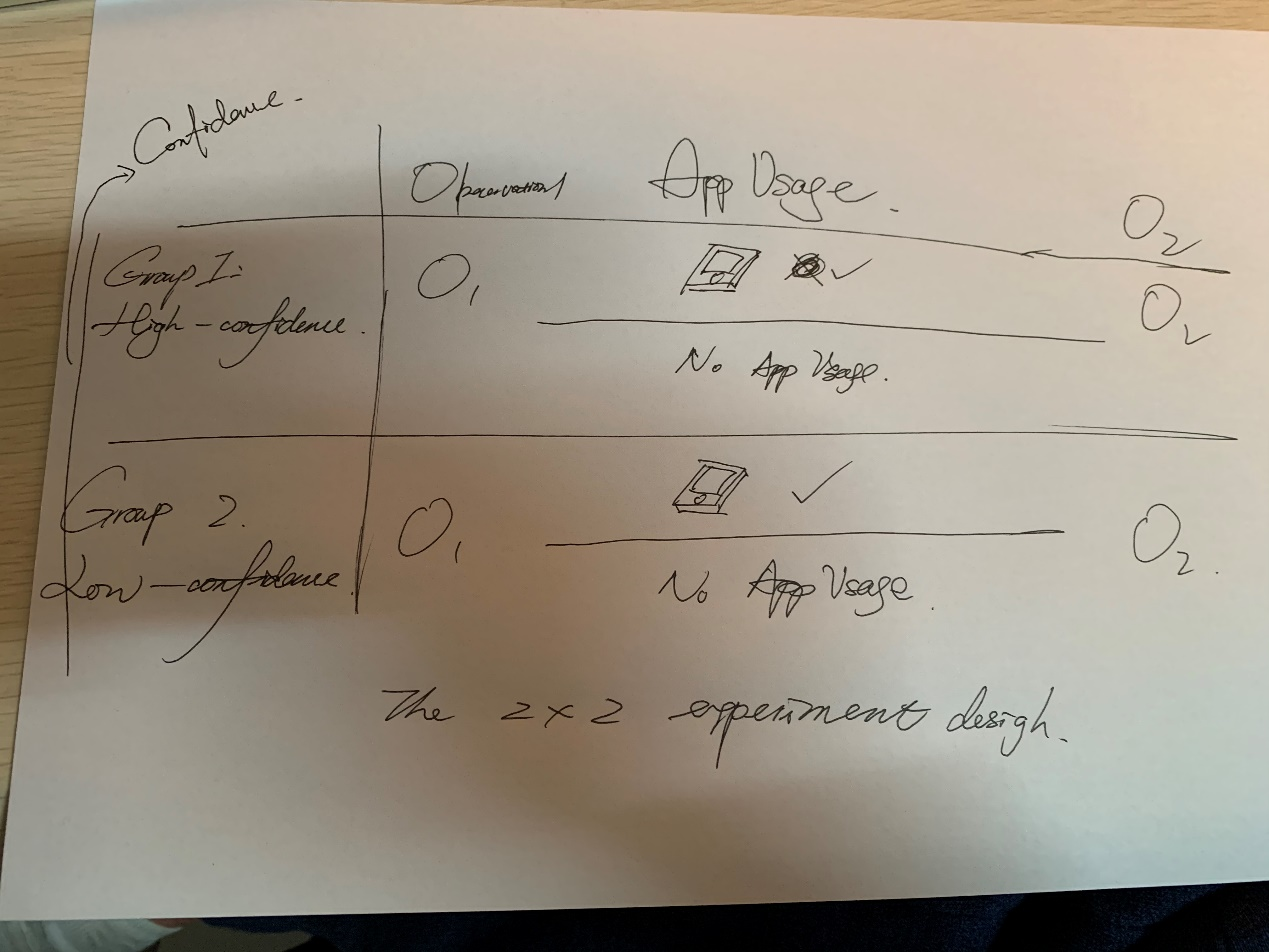 Confidence.
Observation1 App Usage. O2
Group 1:
High-confidence.
O1 ✓ O2
No App Usage.
Group 2.
Low-confidence.
O1 ✓ O2.
No App Usage.
The 2×2 experiment desigh.